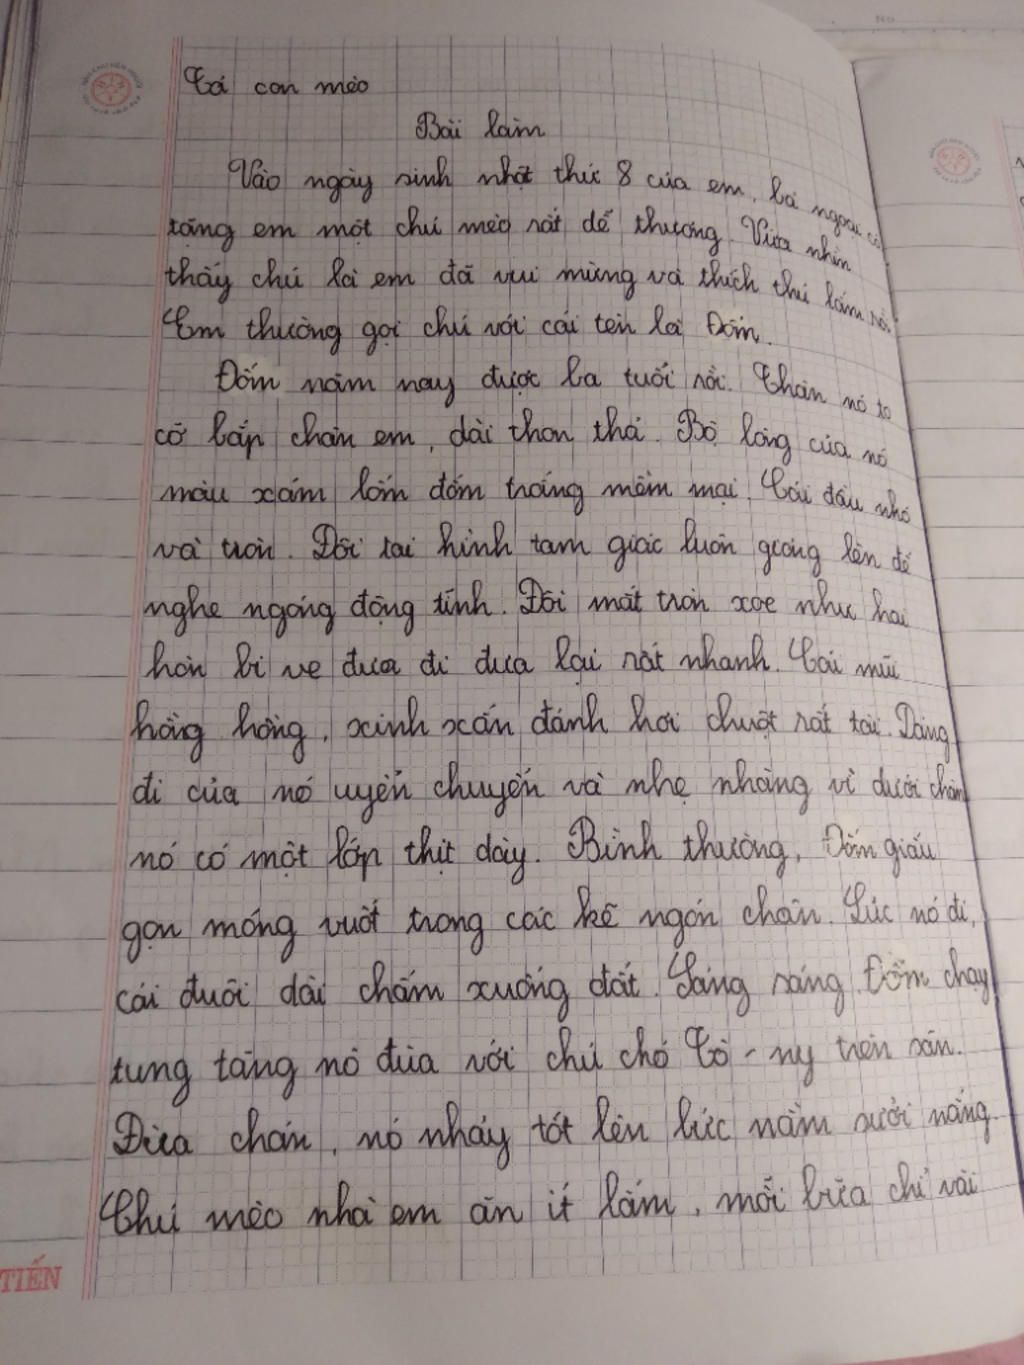 Tả con mèo
Bài làm
Vào ngày sinh nhật thứ 8 của em, bà ngoại có
tặng em một chú mèo rất dễ thương. Vừa nhìn
thấy chú là em đã vui mừng và thích thú lắm rồi.
Em thường gọi chú với cái tên là Đốm.
Đốm năm nay được ba tuổi rồi. Thân nó to
cỡ bắp chân em, dài thon thả. Bộ lông của nó
màu xám lốm đốm trắng mềm mại. Cái đầu nhỏ
và tròn. Đôi tai hình tam giác luôn giương lên để
nghe ngóng động tĩnh. Đôi mắt tròn xoe như hai
hòn bi ve đưa đi đưa lại rất nhanh. Cái mũi
hồng hồng, xinh xắn đánh hơi chuột rất tài. Dáng
đi của nó uyển chuyển và nhẹ nhàng vì dưới chân
nó có một lớp thịt dày. Bình thường, Đốm giấu
gọn móng vuốt trong các kẽ ngón chân. Lúc nó đi,
cái đuôi dài chấm xuống đất. Sáng sáng Đốm chạy
tung tăng nô đùa với chú chó Tô - ny trên sân.
Đùa chán, nó nhảy tót lên bục nằm sưởi nắng.
Chú mèo nhà em ăn ít lắm, mỗi bữa chỉ vài
TIẾN